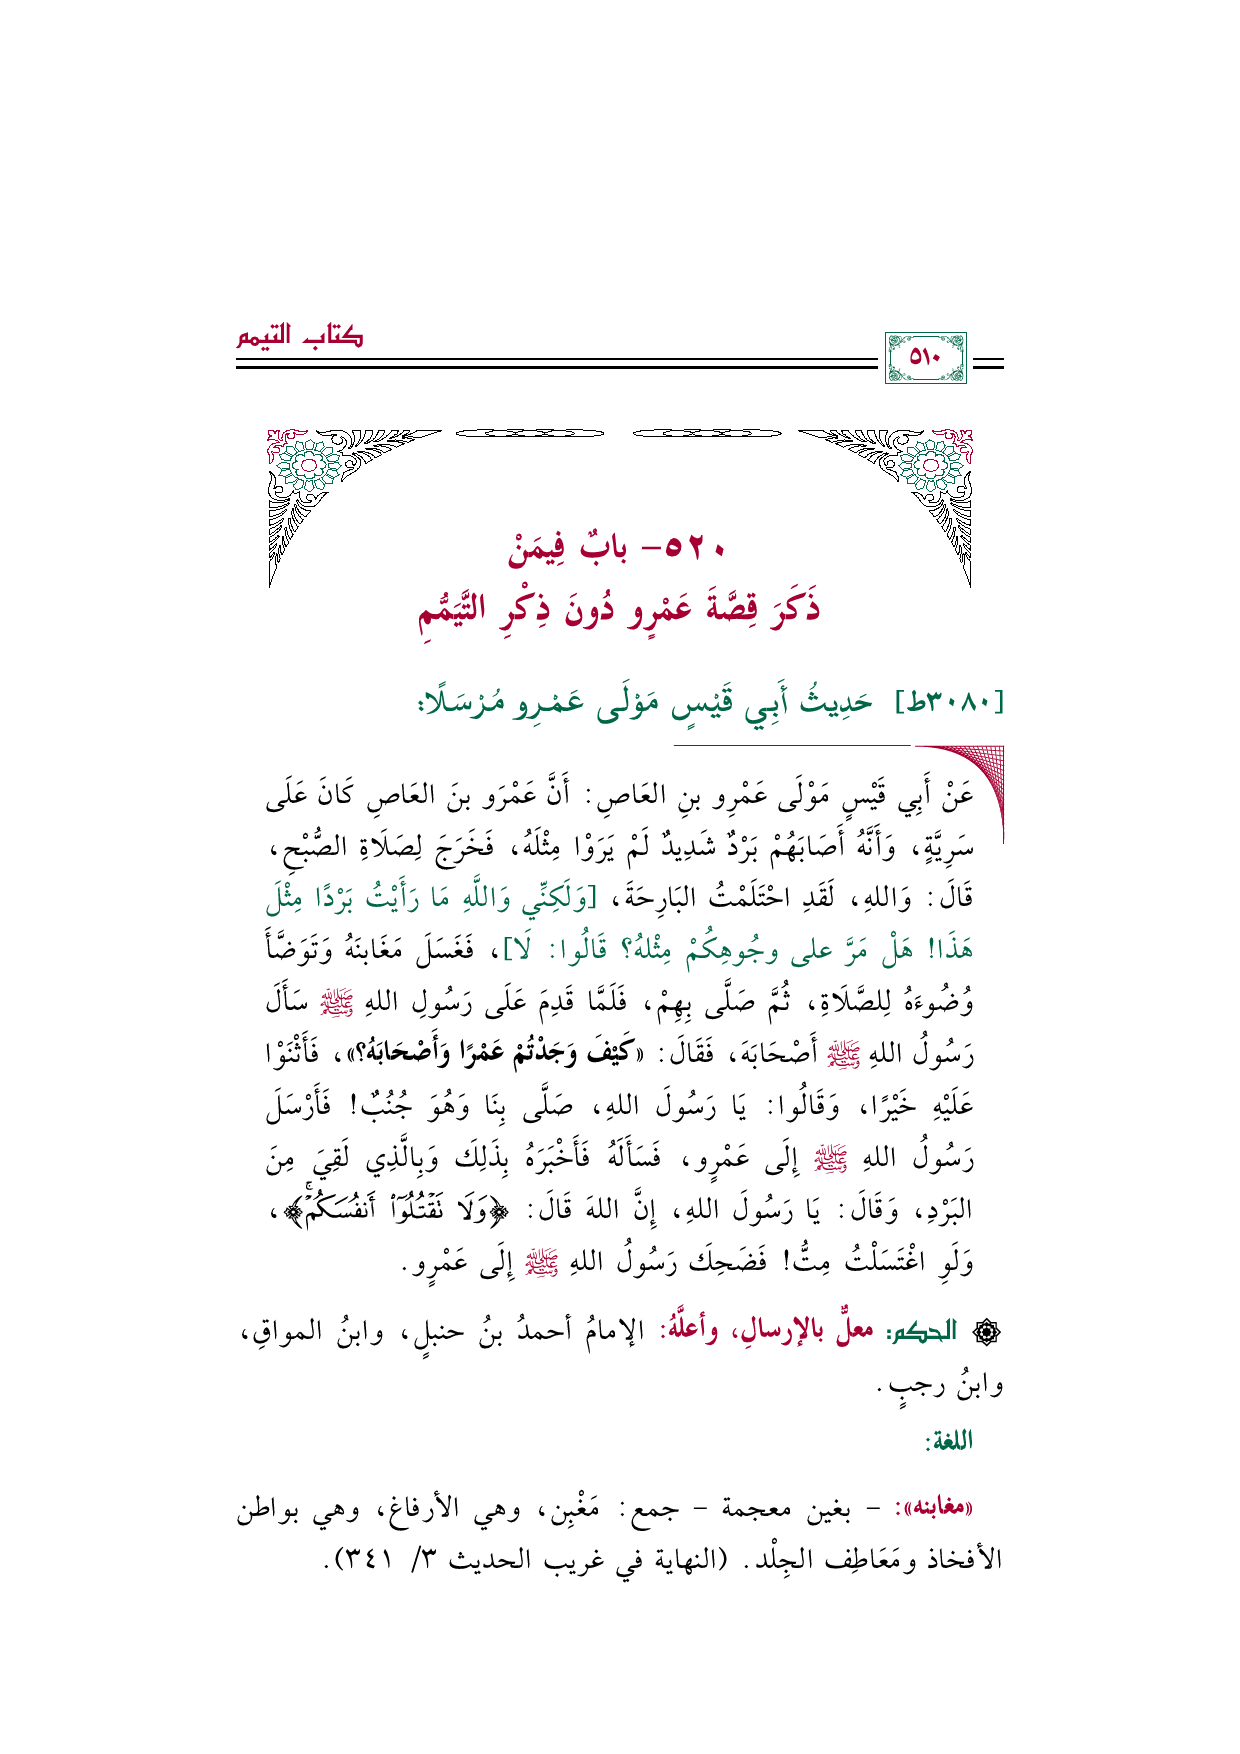 كتاب التيمم
٥١٠
٥٢٠- بابٌ فِيمَنْ
ذَكَرَ قِصَّةَ عَمْرٍو دُونَ ذِكْرِ التَّيَمُّمِ
[٣٠٨٠ط] حَدِيثُ أَبِي قَيْسٍ مَوْلَى عَمْرِو مُرْسَلًا:
عَنْ أَبِي قَيْسٍ مَوْلَى عَمْرِو بنِ العَاصِ: أَنَّ عَمْرَو بنَ العَاصِ كَانَ عَلَى
سَرِيَّةٍ، وَأَنَّهُ أَصَابَهُمْ بَرْدٌ شَدِيدٌ لَمْ يَرَوْا مِثْلَهُ، فَخَرَجَ لِصَلَاةِ الصُّبْحِ،
قَالَ: وَاللهِ، لَقَدِ احْتَلَمْتُ البَارِحَةَ، [وَلَكِنِّي وَاللَّهِ مَا رَأَيْتُ بَرْدًا مِثْلَ
هَذَا! هَلْ مَرَّ على وجُوهِكُمْ مِثْلهُ؟ قَالُوا: لَا]، فَغَسَلَ مَغَابنَهُ وَتَوَضَّأَ
وُضُوءَهُ لِلصَّلَاةِ، ثُمَّ صَلَّى بِهِمْ، فَلَمَّا قَدِمَ عَلَى رَسُولِ اللهِ ﷺ سَأَلَ
رَسُولُ اللهِ ﷺ أَصْحَابَهَ، فَقَالَ: «كَيْفَ وَجَدْتُمْ عَمْرًا وَأَصْحَابَهُ؟»، فَأَثْنَوْا
عَلَيْهِ خَيْرًا، وَقَالُوا: يَا رَسُولَ اللهِ، صَلَّى بِنَا وَهُوَ جُنُبٌ! فَأَرْسَلَ
رَسُولُ اللهِ ﷺ إِلَى عَمْرٍو، فَسَأَلَهُ فَأَخْبَرَهُ بِذَلِكَ وَبِالَّذِي لَقِيَ مِنَ
البَرْدِ، وَقَالَ: يَا رَسُولَ اللهِ، إِنَّ اللهَ قَالَ: ﴿وَلَا تَقْتُلُوٓا۟ أَنفُسَكُمْۚ﴾،
وَلَوِ اغْتَسَلْتُ مِتُّ! فَضَحِكَ رَسُولُ اللهِ ﷺ إِلَى عَمْرٍو.
الحكم: معلٌّ بالإرسالِ، وأعلَّهُ: الإمامُ أحمدُ بنُ حنبلٍ، وابنُ المواقِ،
وابنُ رجبٍ.
اللغة:
«مغابنه»: - بغين معجمة - جمع: مَغْبِن، وهي الأرفاغ، وهي بواطن
الأفخاذ ومَعَاطِف الجِلْد. (النهاية في غريب الحديث ٣/ ٣٤١).